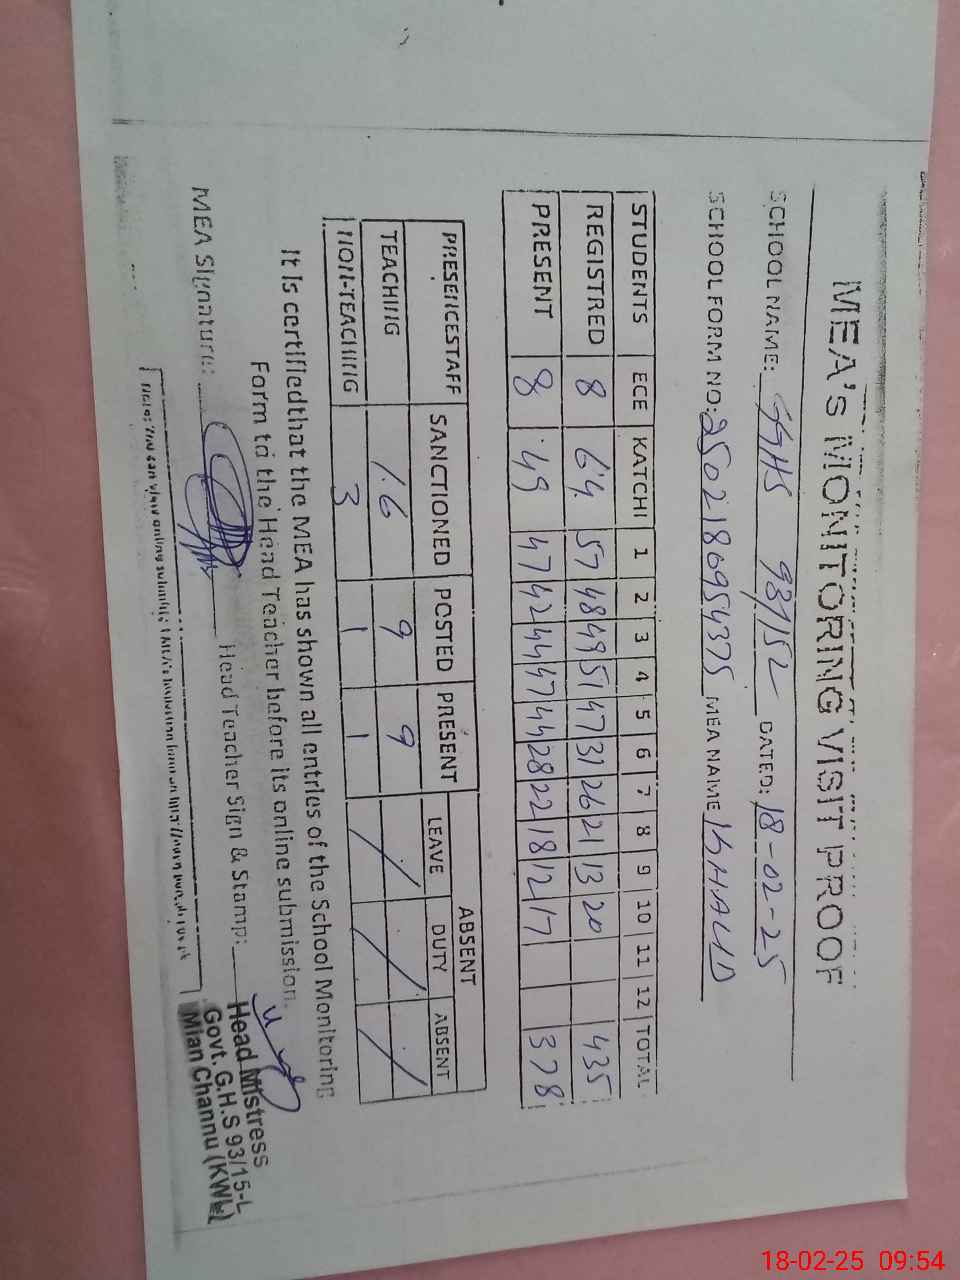 MEA's MONITORING VISIT PROOF
SCHOOL NAME: GGHS 93/15L DATED: 18-02-25
SCHOOL FORM NO: 2502180954375 MEA NAME KHALID
STUDENTS ECE KATCHI 1 2 3 4 5 6 7 8 9 10 11 12 TOTAL
REGISTRED 8 64 57 48 49 51 47 31 26 21 13 20 435
PRESENT 8 49 47 42 44 47 44 28 22 18 12 17 378
ABSENT
PRESENCESTAFF SANCTIONED POSTED PRESENT LEAVE DUTY ABSENT
TEACHING 16 9 9 / / /
NON-TEACHING 3 1 1
It is certifiedthat the MEA has shown all entries of the School Monitoring
Form to the Head Teacher before its online submission.
MEA Signature: Head Teacher Sign & Stamp:
Head Mistress
Govt. G.H.S 93/15-L
Mian Channu (KWL)
Note: You can view online submitted
18-02-25 09:54